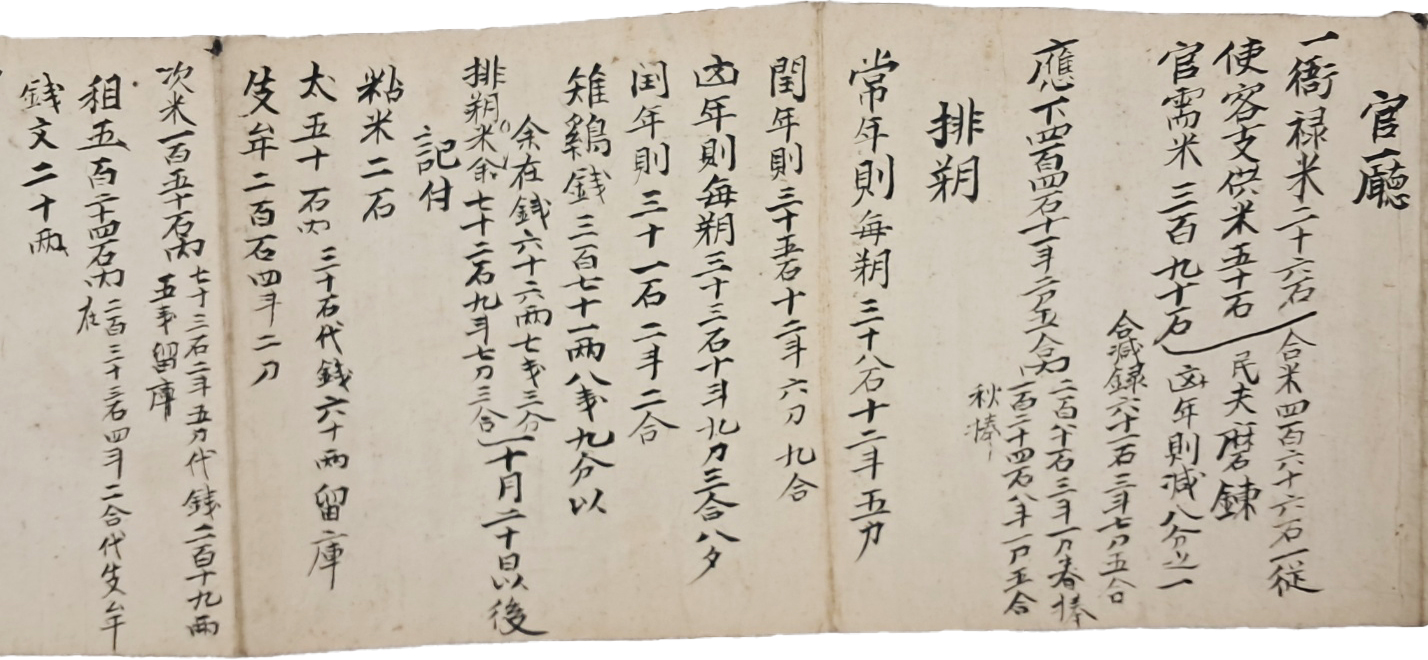 官廳
一衙祿米二十六石
使客支供米五十石
官需米三百九十石
合米四百六十六石一從
民夫磨鍊
凶年則減八分之一
合減錄六十一石三斗七刀五合
應下四百四石十一斗二刀五合內
二百八十石三斗一刀春捧
一百二十四石八斗一刀五合
秋捧
排朔
常年則每朔三十八石十二斗五刀
閏年則三十五石十二斗六刀九合
凶年則每朔三十三石十斗九刀三合八夕
閏年則三十一石二斗二合
雉鷄錢三百七十一兩八戔九分以
余在錢六十六兩七戔三分
排朔米余七十二石九斗七刀三合
十月二十日以後
記付
粘米二石
太五十石內三十石代錢六十兩留庫
支牟二百石四斗二刀
次米一百五十石內七十三石二斗五刀代錢二百十九兩
五戔留庫
租五百二十四石內二百三十三石四斗二合代支牟
在
錢文二十兩